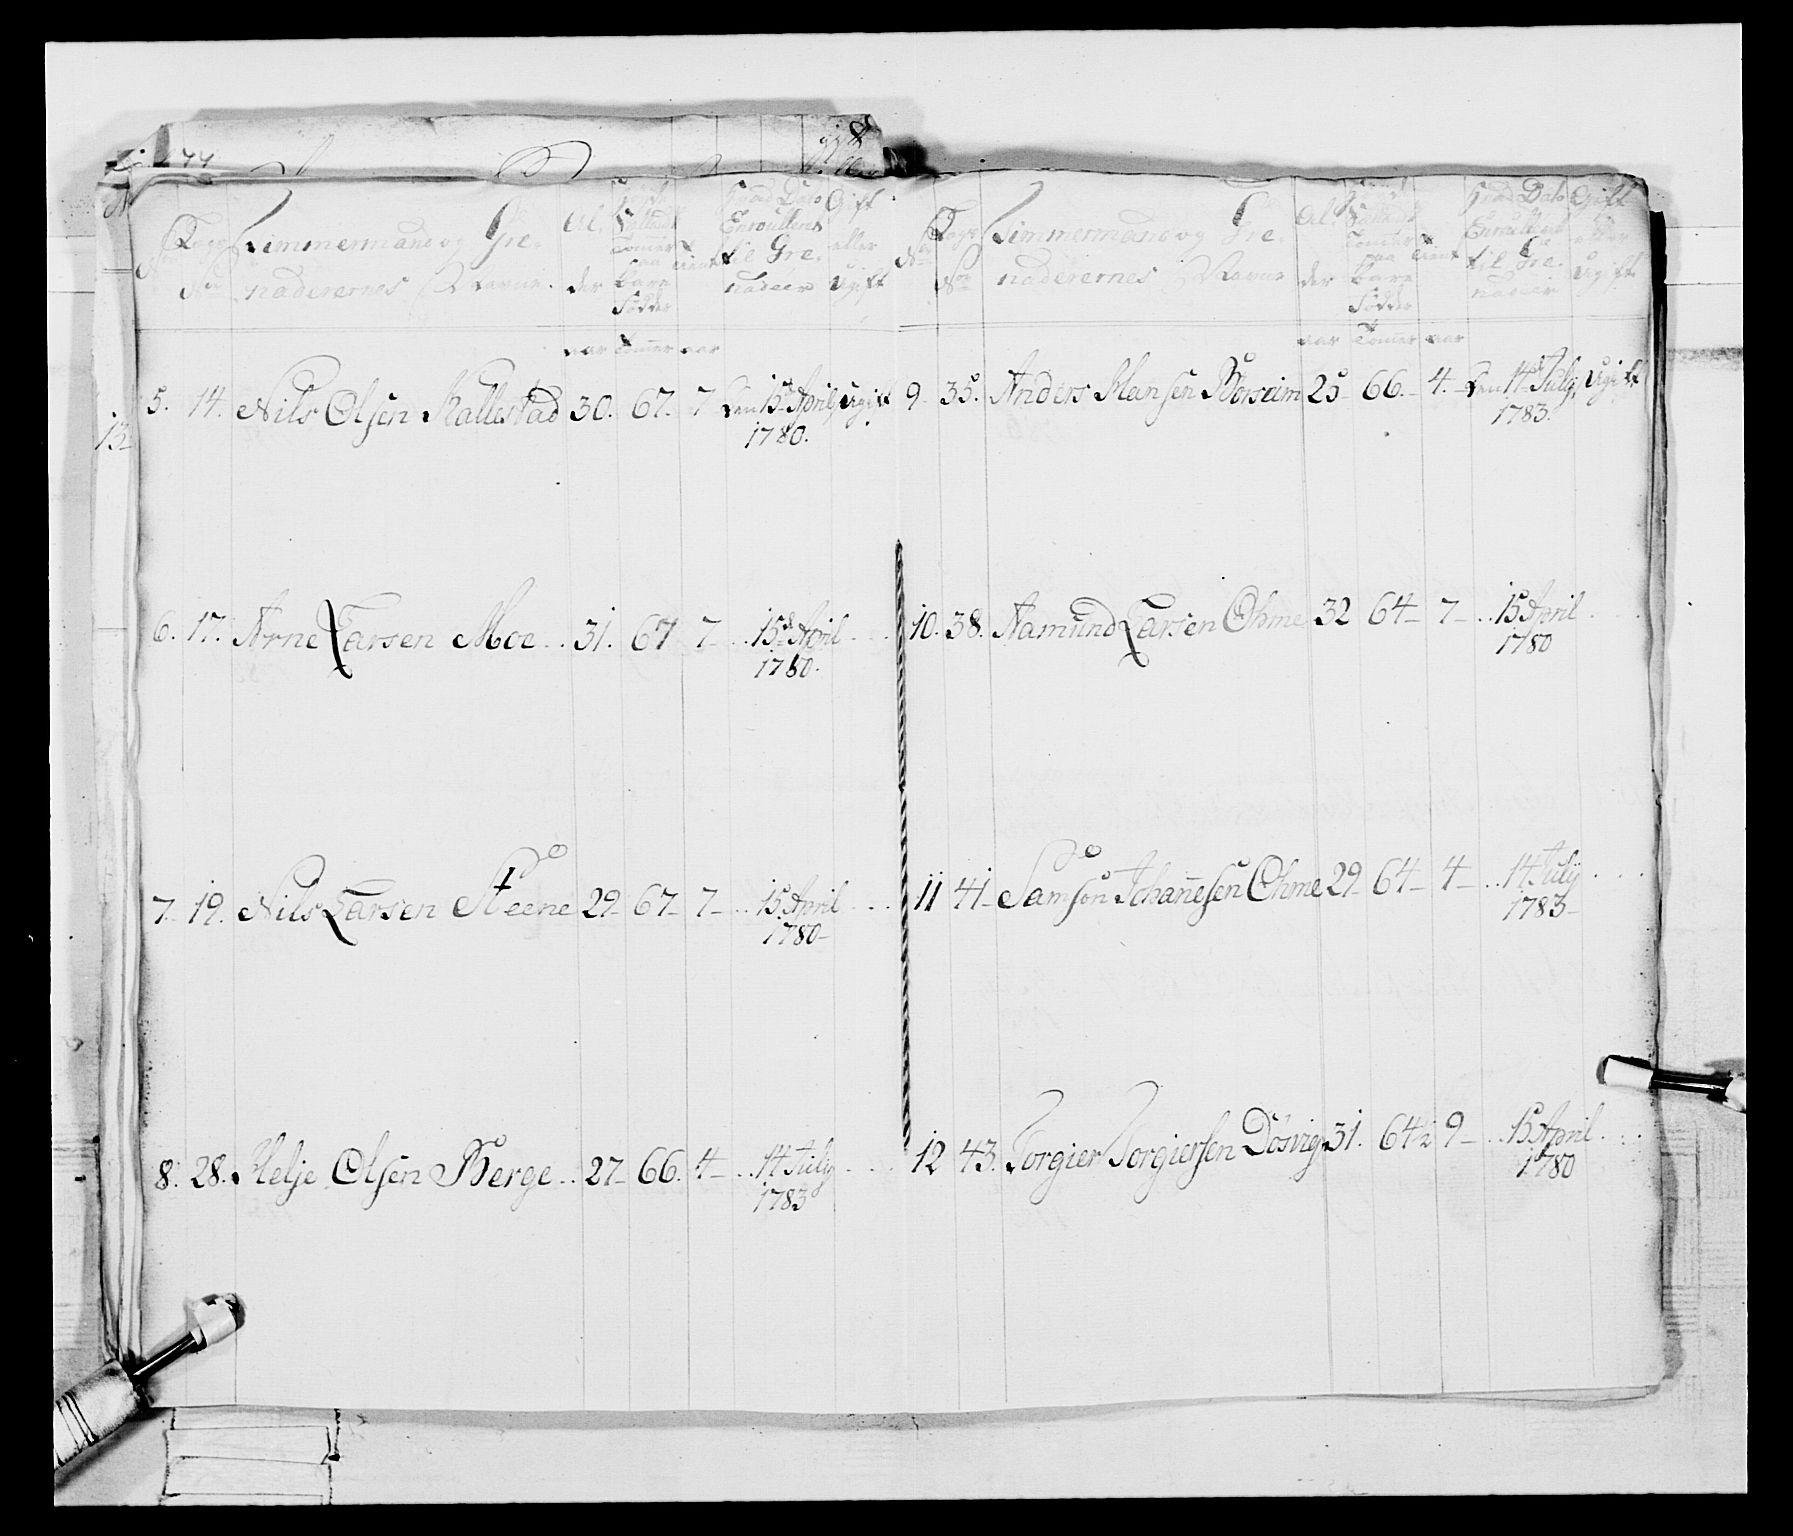 Timmermand og Gre-
naderernes Navne.
Al-
der
aar
Tommer
aar
Hvad Dato
Enroulleret
til Gre-
nadeer
Gift
eller
Ugift
5. 14. Nils Olsen Kallestad 30. 67. 7 den 15 April Ugift
1780.
6. 17. Arne Larsen Moe .. 31. 67 7 - .. 15 April . . .
1780.
7- 19. Nils Larsen Steene 29- 67- 7- .. 15 April . . .
1780-
8. 28. Helje Olsen Berge .. 27- 66. 4 - .. 14 July . . .
1783
Timmermand og Gre-
naderernes Navne
Al-
der
aar
Tommer
aar
Hvad Dato
Enroulleret
til Gre-
nadeer
Gift
eller
Ugift
9- 35. Anders Hansen Børsum 25- 66.- 4.- den 14 July Ugift
1783.
10. 38. Aamund Larsen Ohme 32 64- 7- .. 15 April . . .
1780
11 41- Samson Johannesen Ohme 29- 64- 4- .. 14 July . . .
1783-
12 43. Torgier Torgiersen Døsvig 31. 64½ 9- .. 15 April . . .
1780
13-